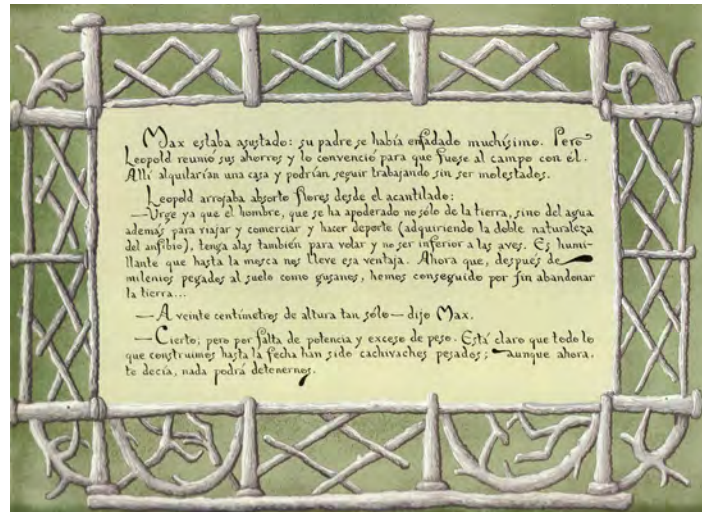 Max estaba asustado: su padre se había enfadado muchísimo. Pero
Leopold reunió sus ahorros y lo convenció para que fuese al campo con él.
Allí alquilarían una casa y podrían seguir trabajando sin ser molestados.
Leopold arrojaba absorto flores desde el acantilado:
—Urge ya que el hombre, que se ha apoderado no sólo de la tierra, sino del agua
además para viajar y comerciar y hacer deporte (adquiriendo la doble naturaleza
del anfibio), tenga alas también para volar y no ser inferior a las aves. Es humi-
llante que hasta la mosca nos lleve esa ventaja. Ahora que, después de
milenios pegados al suelo como gusanos, hemos conseguido por fin abandonar
la tierra...
—A veinte centímetros de altura tan sólo— dijo Max.
—Cierto; pero por falta de potencia y exceso de peso. Está claro que todo lo
que construimos hasta la fecha han sido cachivaches pesados; aunque ahora,
te decía, nada podrá detenernos.